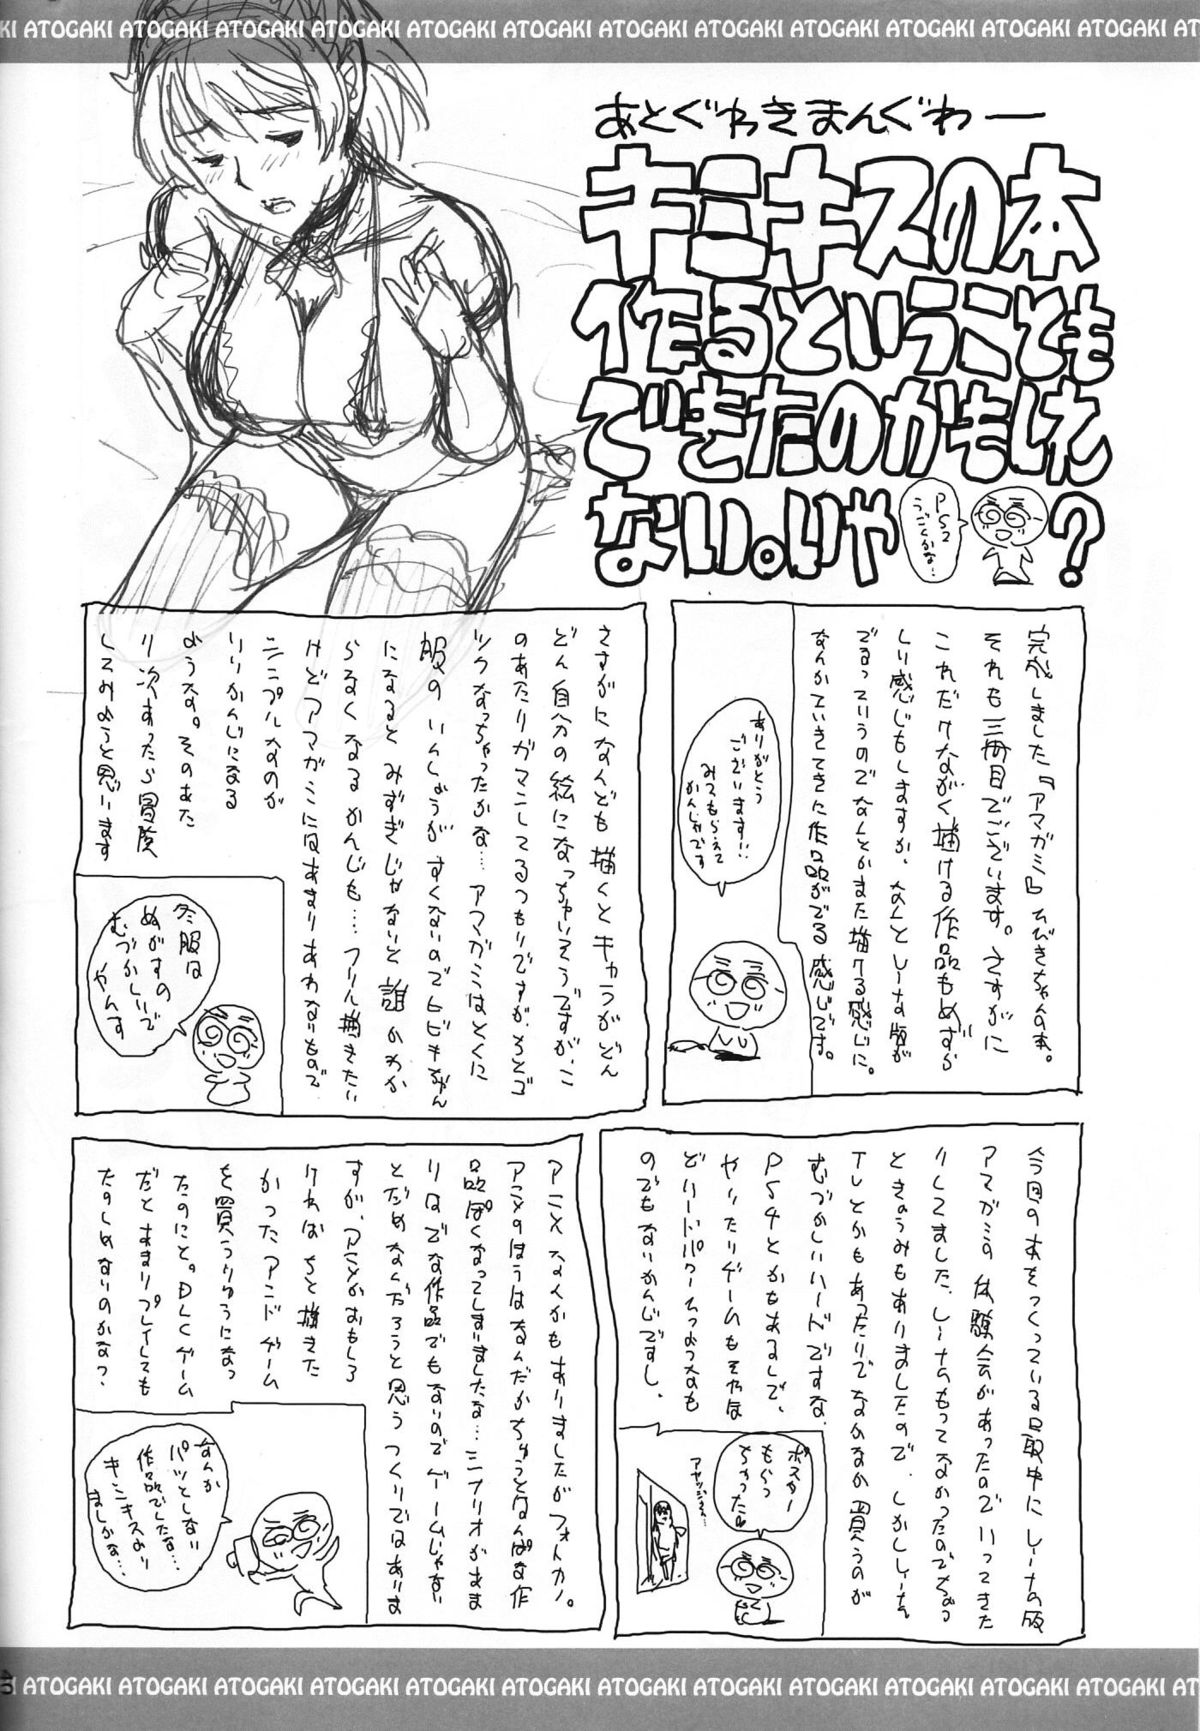 KI ATOGAKI ATOGAKI ATOGAKI ATOGAKI ATOGAKI ATOGAKI ATOGAKI ATOGAKI ATOGAKI ATO
あとぐわきまんぐわー
キミキスの本
作るということも
できたのかもしれ
ない。いや
?
PS2
うごくかな…
完成しました『アマガミ』ひびきちゃん本。
それも三冊目でございます。さすがに
これだけながく描ける作品もめずら
しい感じもしますが、なんとしーな版が
でるっていうのでなんとかまた描ける感じに。
なんかていきてきに作品がでる感じです。
ありがとう
ございます!!
みてもらえて
かんしゃです
さすがになんども描くとキャラがどん
どん自分の絵になっちゃいそうですが、こ
のあたりガマンしてるつもりですが、ちとゴ
ツクなっちゃったかな…アマガミはとくに
服のいんしょうがすくないのでヒビキちゃん
になるとみずぎじゃないと誰かわか
らなくなるかんじも…フリル描きたい
けどアマガミにはあまりあわないもので
シンプルなのが
いいかんじになる
ような。そのあた
り次あったら冒険
してみようと思います
冬服は
ぬがすの
むづかしいで
やんす
今回の本をつくっている最中にしーなの版
アマガミの体験会があったのでいってきた
りしてました、しーなもってなかったのでちょっ
ときょうみもありましたので、しかししーなん
TLとかもあったりでなかなか買うのが
むづかしいハードですな、
PS4とかもあるしで、
やりたいゲームもそれほ
どハードパワーひつようなも
のでもないかんじですし。
ポスター
もらっ
ちゃった
アニメなんかもありましたがフォトカノ。
アニメのほうはなんだかちゅうとはんぱな作
品ぽくなってしまいましたな…シナリオがあま
りはでな作品でもないのでゲームじゃない
とだめなんだろうと思うつくりではありま
すが、アニメがおもしろ
ければちと描きた
かったアンドゲーム
を買うりゆうになっ
たのにと。DLCゲーム
だとあまりプレイしても
たのしめないのかな?
なんか
パッとしない
作品でしたな…
キミキスより
ましかな…
I ATOGAKI ATOGAKI ATOGAKI ATOGAKI ATOGAKI ATOGAKI ATOGAKI ATOGAKI ATOGAKI ATO